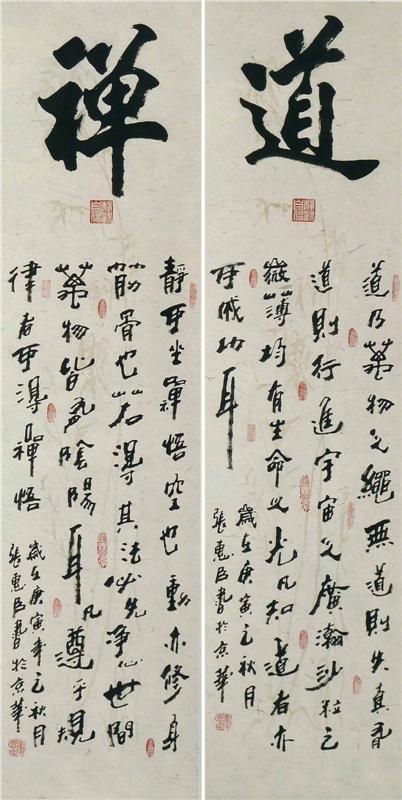 道
道乃萬物之繩無道則失真有
道則行進宇宙之廣瀚沙粒之
微薄均有生命之光凡知道者亦
可成功耳
歲在庚寅之秋月
張惠臣書於京華
禪
靜可坐禪悟空也動亦修身
筋骨也若得其法必先净心世間
萬物皆有陰陽耳凡遵乎規
律者可得禪悟
歲在庚寅年之秋月
張惠臣書於京華